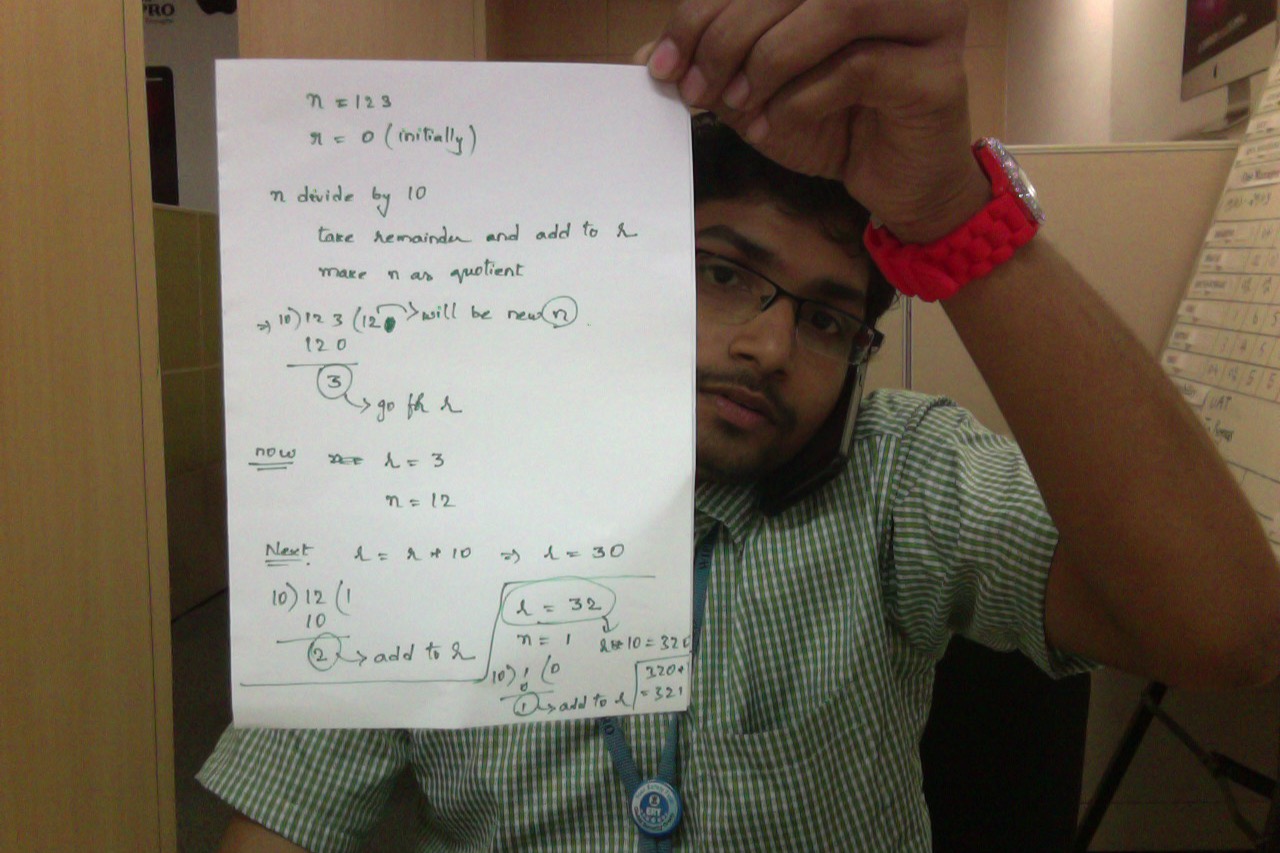 PRO
n = 123
r = 0 (initially)
n divide by 10
take remainder and add to r
make n as quotient
⇒ 10) 123 (12 → will be new n
120
3 → go for r
now r = 3
n = 12
Next r = r * 10 ⇒ r = 30
10) 12 (1
10
2 → add to r
r = 32
n = 1 r * 10 = 320
10) 1 (0
0
1 → add to r
320+1
= 321
UAT